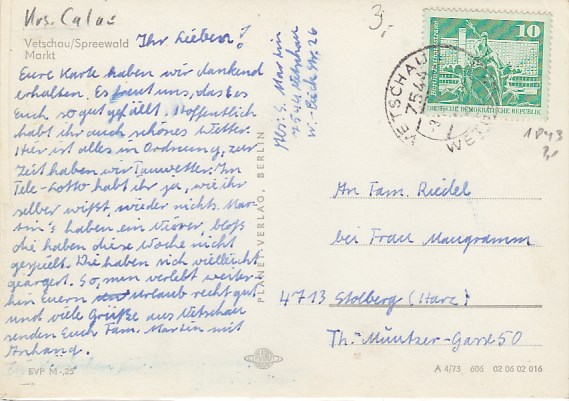 Vetschau/Spreewald
Markt
Ihr Lieben!
Eure Karte haben wir dankend
erhalten. Es freut uns, das Es
Euch so gut gefällt. Hoffentlich
habt ihr auch schönes Wetter.
Hier ist alles in Ordnung, zur
Zeit haben wir Tauwetter. Im
Tele-Lotto habt ihr ja, wie ihr
selber wißt, wieder nichts. Mar-
tin's haben ein Vierer, bloß
die haben diese Woche nicht
gespielt. Die haben sich vielleicht
geärgert. So, nun verlebt weiter-
hin Euern Urlaub recht gut
und viele Grüße aus Vetschau
senden Euch Fam. Martin mit
Anhang.
EVP M -,25
Abs. G. Martin
7544 Vetschau
W.-Pieck Str. 26
PLANET-VERLAG, BERLIN
3,-
10
DEUTSCHE DEMOKRATISCHE REPUBLIK
VETSCHAU
7544
1043
An Fam. Riedel
bei Frau Mangramm
4713 Stolberg (Harz)
Th.-Müntzer-Gasse 50
A 4/73 606 02 06 02 016